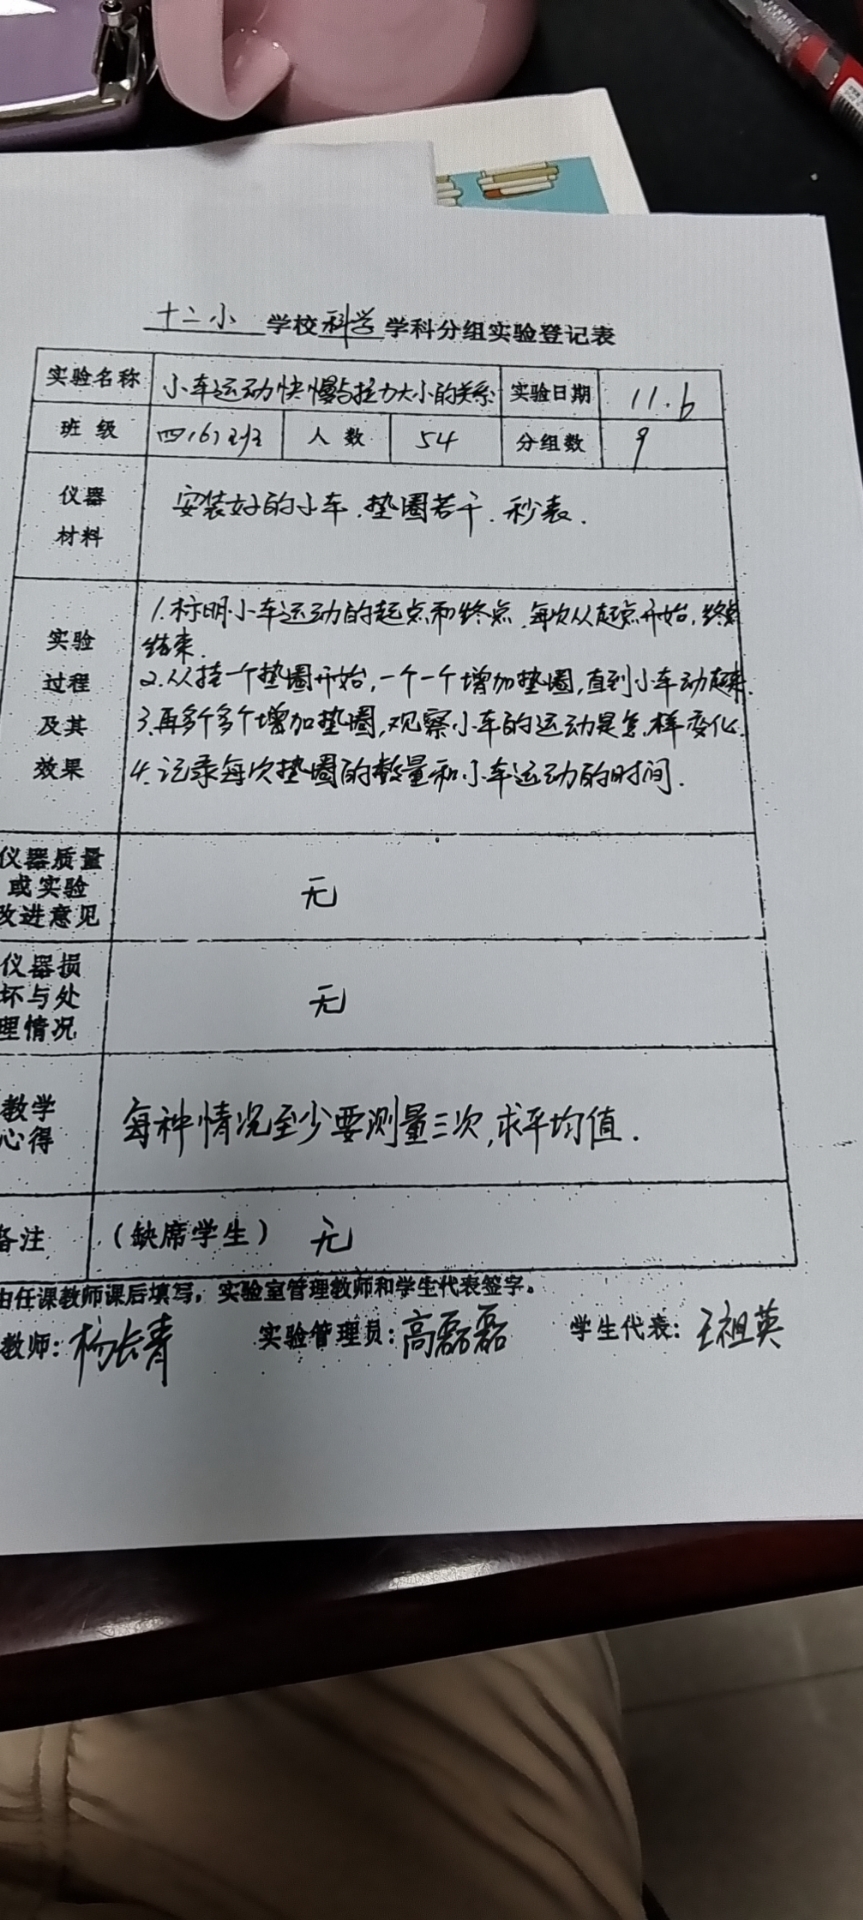 十二小 学校 科学 学科分组实验登记表
实验名称 小车运动快慢与拉力大小的关系 实验日期 11.6
班级 四(6)班 人数 54 分组数 9
仪器材料 安装好的小车.垫圈若干.秒表.
实验过程及其效果
1.标明小车运动的起点和终点,每次从起点开始,终点
结束.
2.从挂一个垫圈开始,一个一个增加垫圈,直到小车动起来.
3.再多个多个增加垫圈,观察小车的运动是怎样变化.
4.记录每次垫圈的数量和小车运动的时间.
仪器质量或实验改进意见 无
仪器损坏与处理情况 无
教学心得 每种情况至少要测量三次,求平均值.
备注 (缺席学生) 无
由任课教师课后填写,实验室管理教师和学生代表签字。
教师:杨长青 实验管理员:高磊磊 学生代表:王祖英